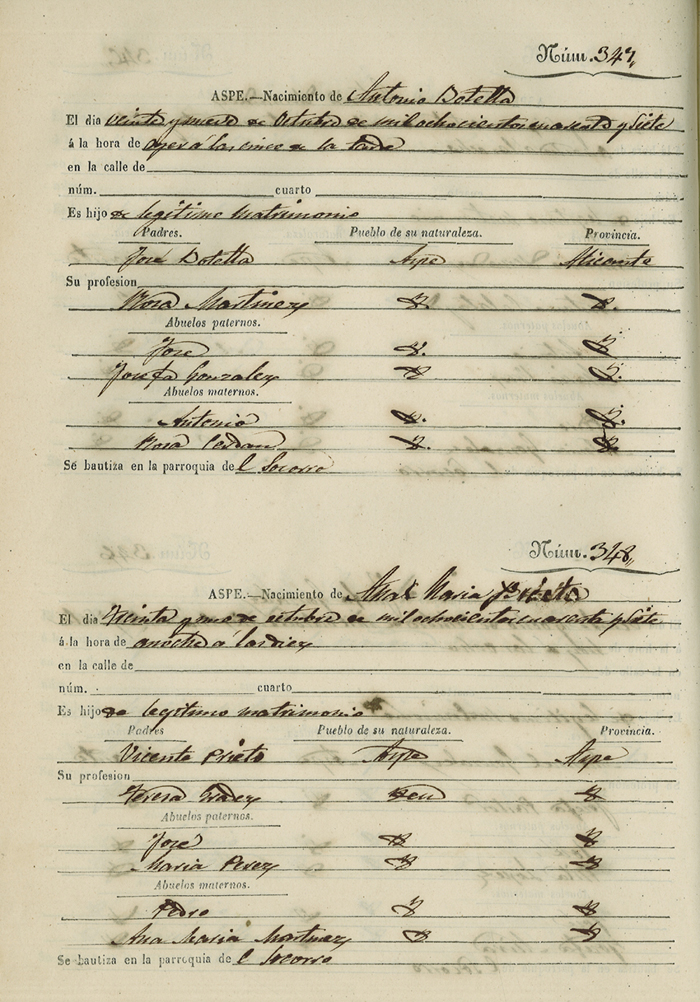 Núm. 347,,
ASPE.—Nacimiento de Antonio Botella
El dia veinte y nueve de Octubre de mil ochocientos cuarenta y Siete
á la hora de ayer á las cinco de la tarde
en la calle de
núm. cuarto
Es hijo de legitimo matrimonio
Padres. Pueblo de su naturaleza. Provincia.
José Botella Aspe Alicante
Su profesion
Rosa Martinez
Abuelos paternos.
José
Josefa Gonzalez
Abuelos maternos.
Antonio
Rosa Cerdan
Se bautiza en la parroquia del Socorro
Núm. 348,,
ASPE.—Nacimiento de Ana Maria Prieto
El dia treinta y uno de octubre de mil ochocientos cuarenta y Siete
á la hora de anoche a las diez
en la calle de
núm. cuarto
Es hijo de legitimo matrimonio
Padres Pueblo de su naturaleza. Provincia.
Vicente Prieto Aspe Aspe
Su profesion
Teresa
Abuelos paternos.
José
Maria Perez
Abuelos maternos.
Pedro
Ana Maria Martinez
Se bautiza en la parroquia de el Socorro